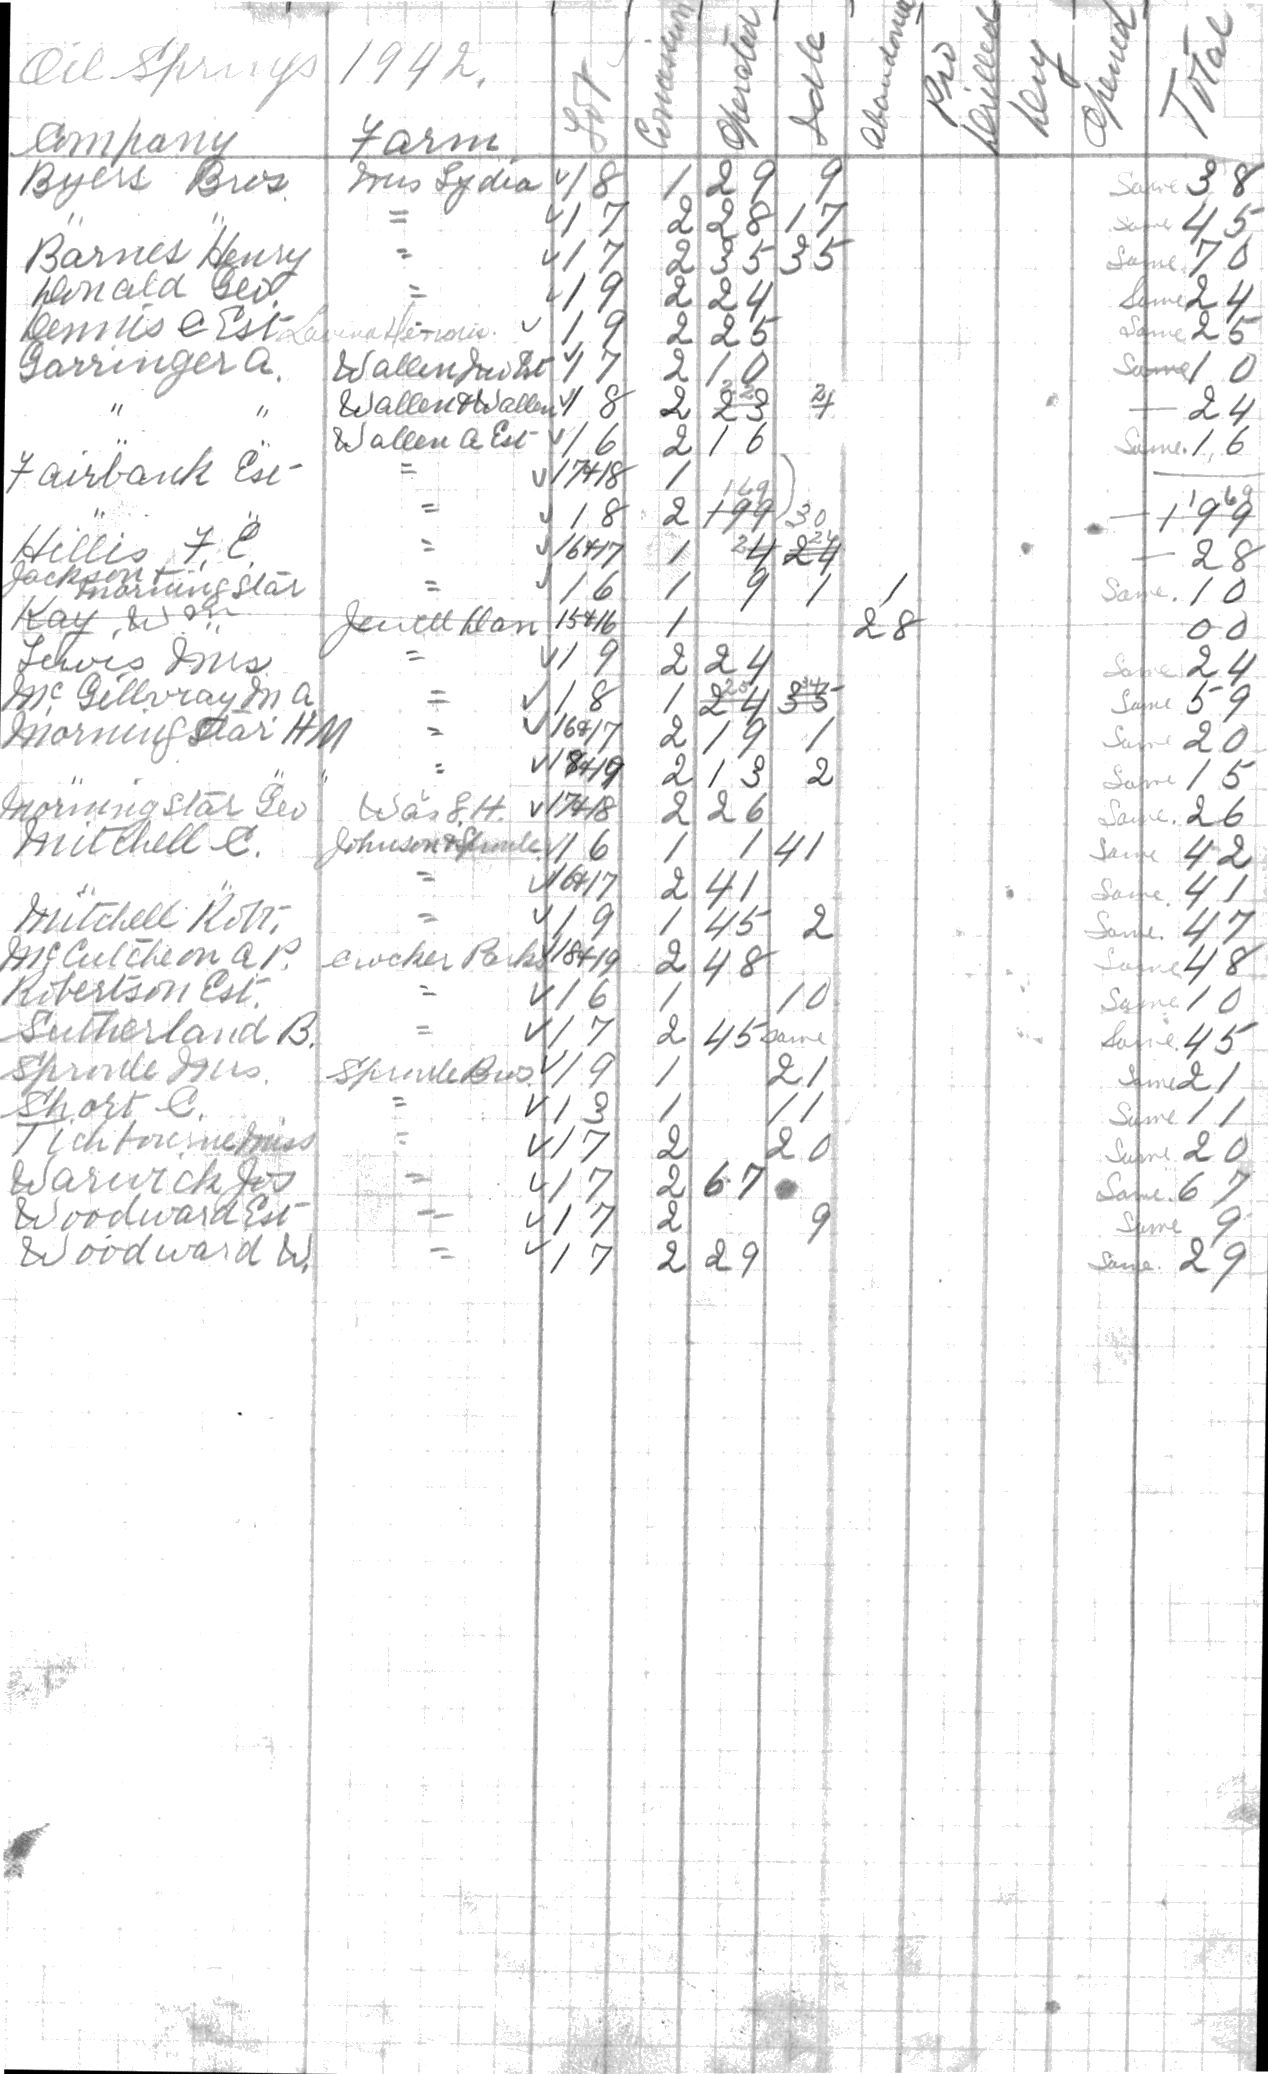 Oil Springs 1942. Lot Concession Operated Idle Abandoned Pro Drilled Dry Opened Total
Company Farm
Byers Bros. Mrs Lydia √18 1 29 9 Same 38
" " = √17 2 28 17 Same 45
Barnes Henry = √17 2 35 35 Same. 70
Donald Geo. = √19 2 24 Same 24
Dennis C Est √ 19 2 25 Same 25
Garringer A. Wallen Jno Est √17 2 10 Same 10
" " Wallen & Wallen √18 2 23 — 24
Wallen A Est √16 2 16 Same. 16
Fairbank Est = √17+18 1
" " = √18 2 199 169 30 — 199 169
Hillis F. C. = √16+17 1 4 24 24 — 28
Jackson + Morningstar = √16 1 9 1 1 Same. 10
Kay, Wm Jewell Dan 15+16 1 28 00
Lewis Mrs = √19 2 24 Same 24
McGillvray M A = √18 1 24 25 35 34 Same 59
Morningstar H M = √16+17 2 19 1 Same 20
" " = √18+19 2 13 2 Same 15
Morningstar Geo Was S. H. √17+18 2 26 Same. 26
Mitchell C. Johnson & Sproule √16 1 1 41 Same 42
" " = √16+17 2 41 Same. 41
Mitchell Robt. = √19 1 45 2 Same. 47
McCutcheon A P. Crocker Parks √18+19 2 48 Same 48
Robertson Est. = √16 1 10 Same 10
Sutherland B. = √17 2 45 same Same. 45
Sproule Mrs. Sproule Bros √19 1 21 Same 21
Short C. = √13 1 11 Same 11
Tichbourne Miss = √17 2 20 Same 20
Warwick Jos = √17 2 67 Same. 67
Woodward Est = √17 2 9 Same 9
Woodward W. = √17 2 29 Same. 29